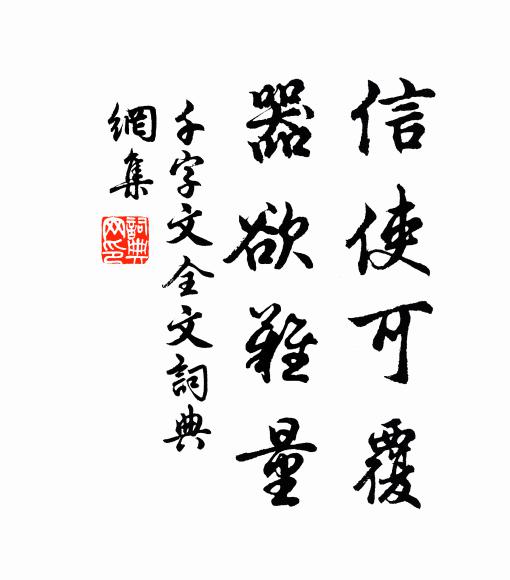 信使可覆
器欲難量
千字文全文詞典
網集
詞典
网印